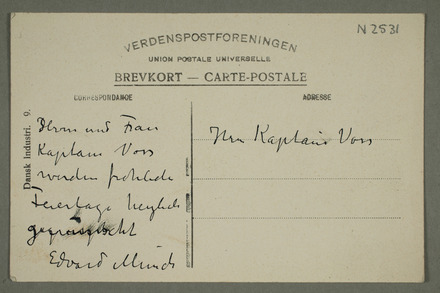 N 2531
VERDENSPOSTFORENINGEN
UNION POSTALE UNIVERSELLE
BREVKORT — CARTE-POSTALE
CORRESPONDANCE
ADRESSE
Dansk Industri. 9.
Herrn und Frau
Kaptain Voss
werden
Feiertage
Edvard Munch
Herr Kaptain Voss